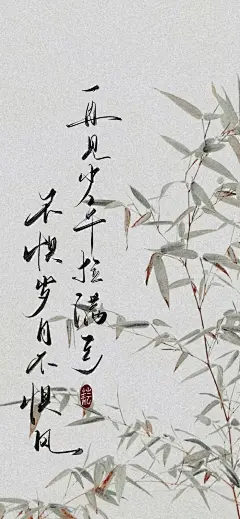 一再见少年拉满弓
不惧岁月不惧风